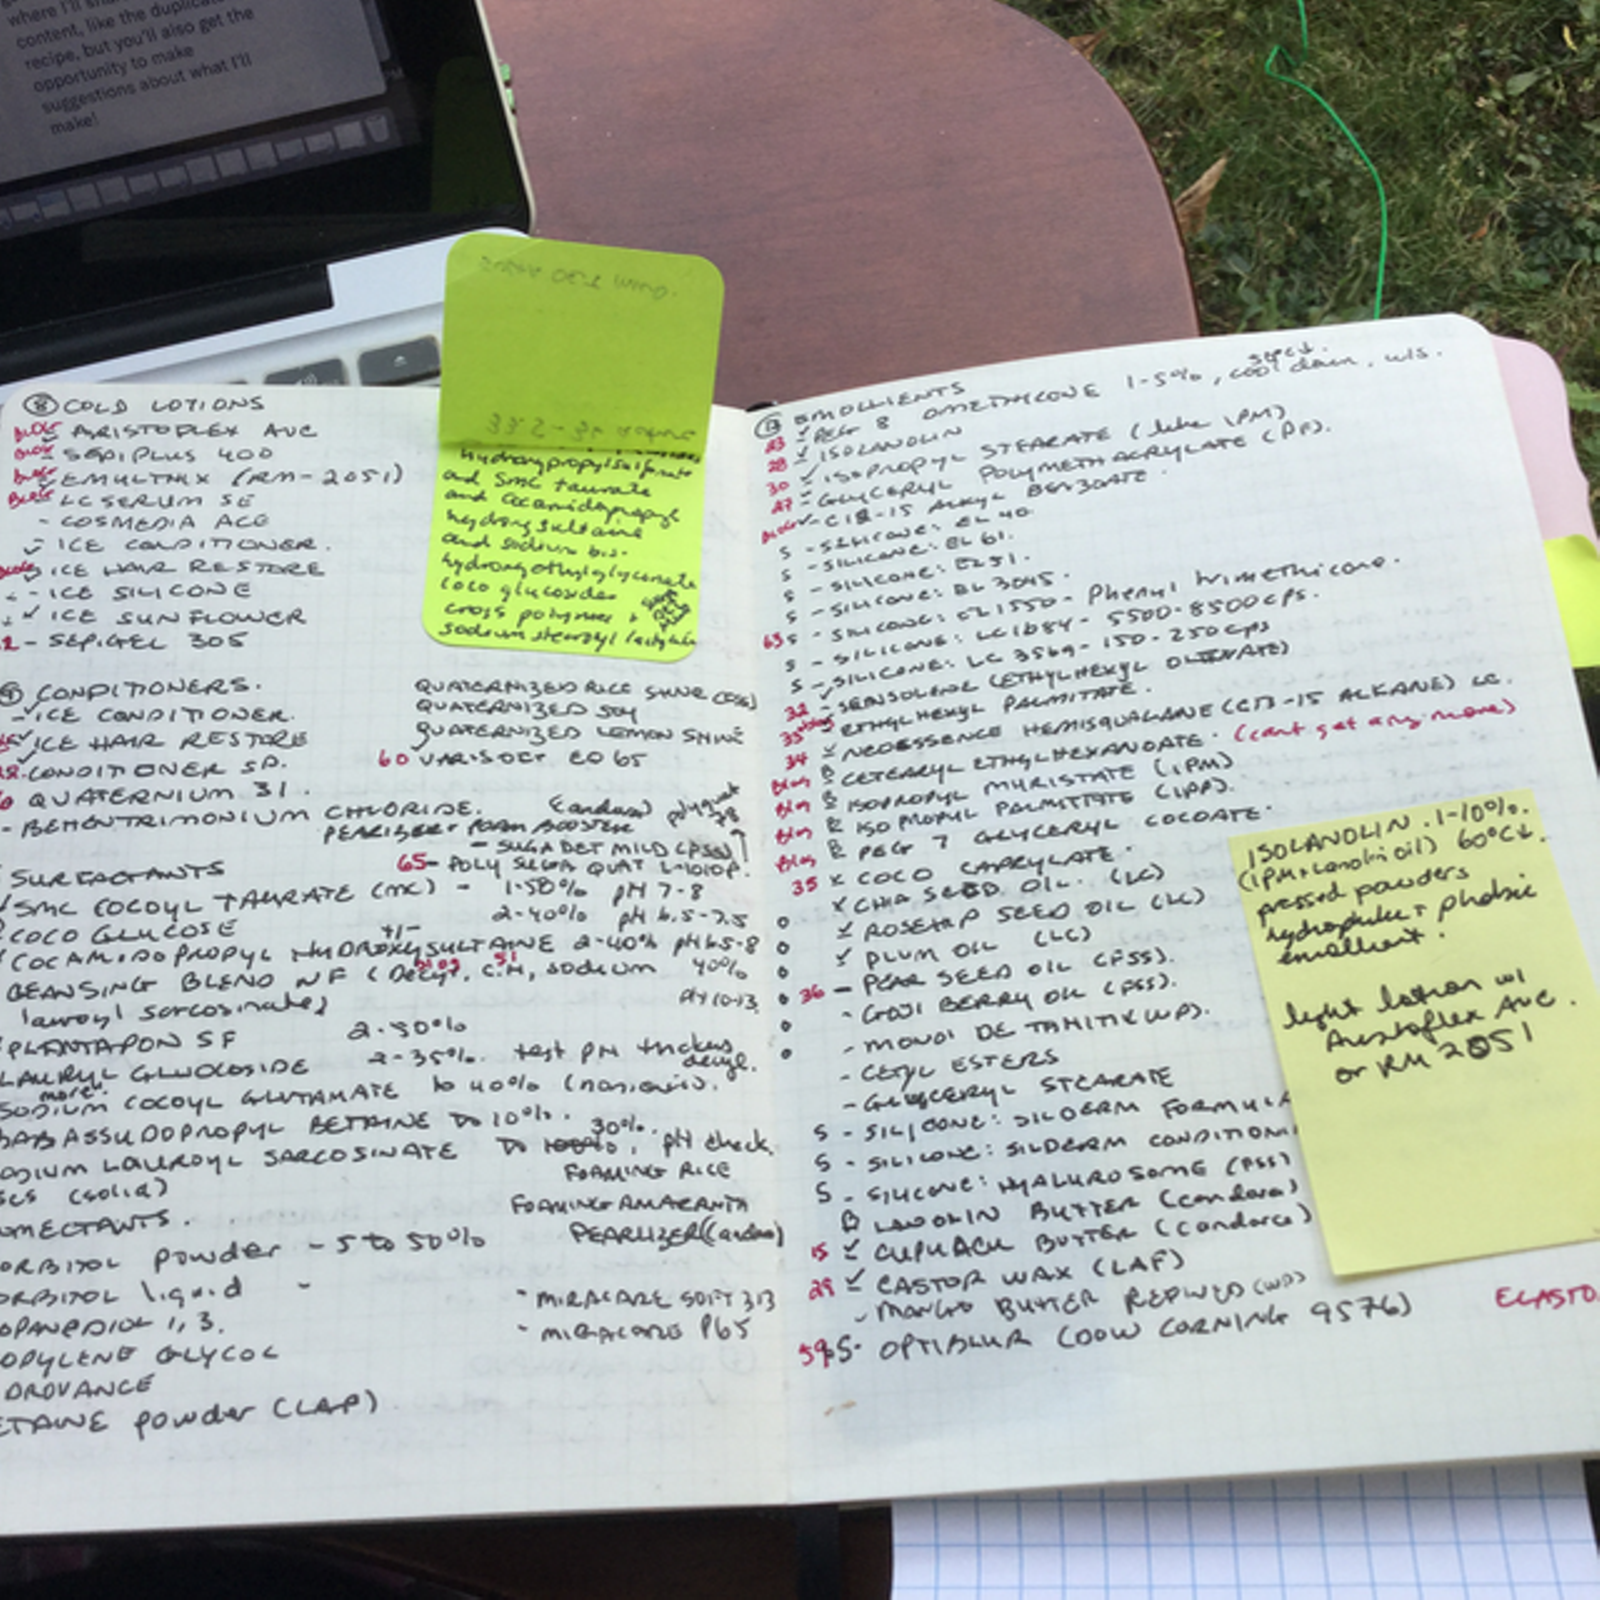 where I'll
content, like the duplicate
recipe, but you'll also get the
opportunity to make
suggestions about what I'll
make!
8 COLD LOTIONS
BLOG ARISTOFLEX AVC
BLOG SEPIPLUS 400
BLOG EMULTHIX (RM-2051)
BLOG LC SERUM SE
- COSMEDIA ACE
- ICE CONDITIONER.
BLOG ICE HAIR RESTORE
- ICE SILICONE
- ICE SUNFLOWER
- SEPIGEL 305
hydroxypropylsulfonate
and SMC taurate
and cocamidopropyl
hydroxysultaine
and sodium bis-
hydroxyethylglycinate
coco glucosides
cross polymer +
sodium stearoyl lactylate
9 CONDITIONERS.
- ICE CONDITIONER.
ICE HAIR RESTORE
CONDITIONER SD.
QUATERNIUM 31.
- BEHENTRIMONIUM CHLORIDE.
QUATERNIZED RICE SHINE (PSS)
QUATERNIZED SOY
QUATERNIZED LEMON SHINE
60 VARISOFT EQ 65
PEARLIZER + FOAM BOOSTER
- SUGA DET MILD (PSS)
65 - POLY SUGA QUAT L-1010P.
SURFACTANTS
SMC COCOYL TAURATE (MC) - 1-50% pH 7-8
COCO GLUCOSE 2-40% pH 6.5-7.5
COCAMIDOPROPYL HYDROXYSULTAINE 2-40% pH 6.5-8
CEANSING BLEND NF (Decyl, C.H, sodium 40%
lauroyl sarcosinate) pH 10-13
PLANTAPON SF 2-50%
LAURYL GLUCOSIDE 2-35%. test pH thickens
decyl.
more
SODIUM COCOYL GLUTAMATE to 40% (nonionic).
BABASSUDOPROPYL BETAINE to 10%.
30%.
SODIUM LAUROYL SARCOSINATE TO 100%, pH check
(solid)
FOAMING RICE
FOAMING AMARANTH
PEARLIZER
powder - 5 to 50%
liquid -
1,3.
GLYCOL
powder (LAP)
- MIRACARE SOFT 313
- MIRACARE P65
13 EMOLLIENTS
23 PEG 8 DIMETHICONE 1-5%, cool down, w/s.
28 - ISOLANOLIN
30 ISOPROPYL STEARATE (like IPM)
27 - GLYCERYL POLYMETHACRYLATE (DF).
BLOG - C12-15 ALKYL BENZOATE.
S - SILICONE: EL 40
S - SILICONE: EL 61.
S - SILICONE: EL51.
S - SILICONE: EL 3045.
63 S - SILICONE: EL1550 - Phenyl trimethicone.
S - SILICONE: LC1684 - 5500-8500cps.
S - SILICONE: LC 3569 - 150-250cps
32 - SENSOLENE (ETHYLHEXYL OLIVATE)
33 ETHYLHEXYL PALMITATE.
34 NEOESSENCE HEMISQUALANE (C13-15 ALKANE) LC.
Blog CETEARYL ETHYLHEXANOATE. (can't get any more)
Blog ISOPROPYL MYRISTATE (IPM)
Blog ISOPROPYL PALMITATE (IPP).
Blog PEG 7 GLYCERYL COCOATE.
35 COCO CAPRYLATE.
CHIA SEED OIL. (LC)
ROSEHIP SEED OIL (LC)
PLUM OIL (LC)
36 - PEAR SEED OIL (PSS).
- GOJI BERRY OIL (PSS).
- MONOI DE TAHITI (WP).
- CETYL ESTERS
- GLYCERYL STEARATE
S - SILICONE: SILDERM FORMULA
S - SILICONE: SILDERM CONDITIONI
S - SILICONE: HYALUROSOME (PSS)
B LANOLIN BUTTER (candora)
15 CUPUACU BUTTER (candora)
29 CASTOR WAX (LAF)
- MANGO BUTTER REFINED (WD)
59 S - OPTIBLUR (DOW CORNING 9576)
ELASTO
ISOLANOLIN. 1-10%.
(IPM + Lanolin oil) 60°C↓.
pressed powders
hydrophilic + phobic
emollient.
light lotion w/
Aristoflex AVC.
or RM 2051